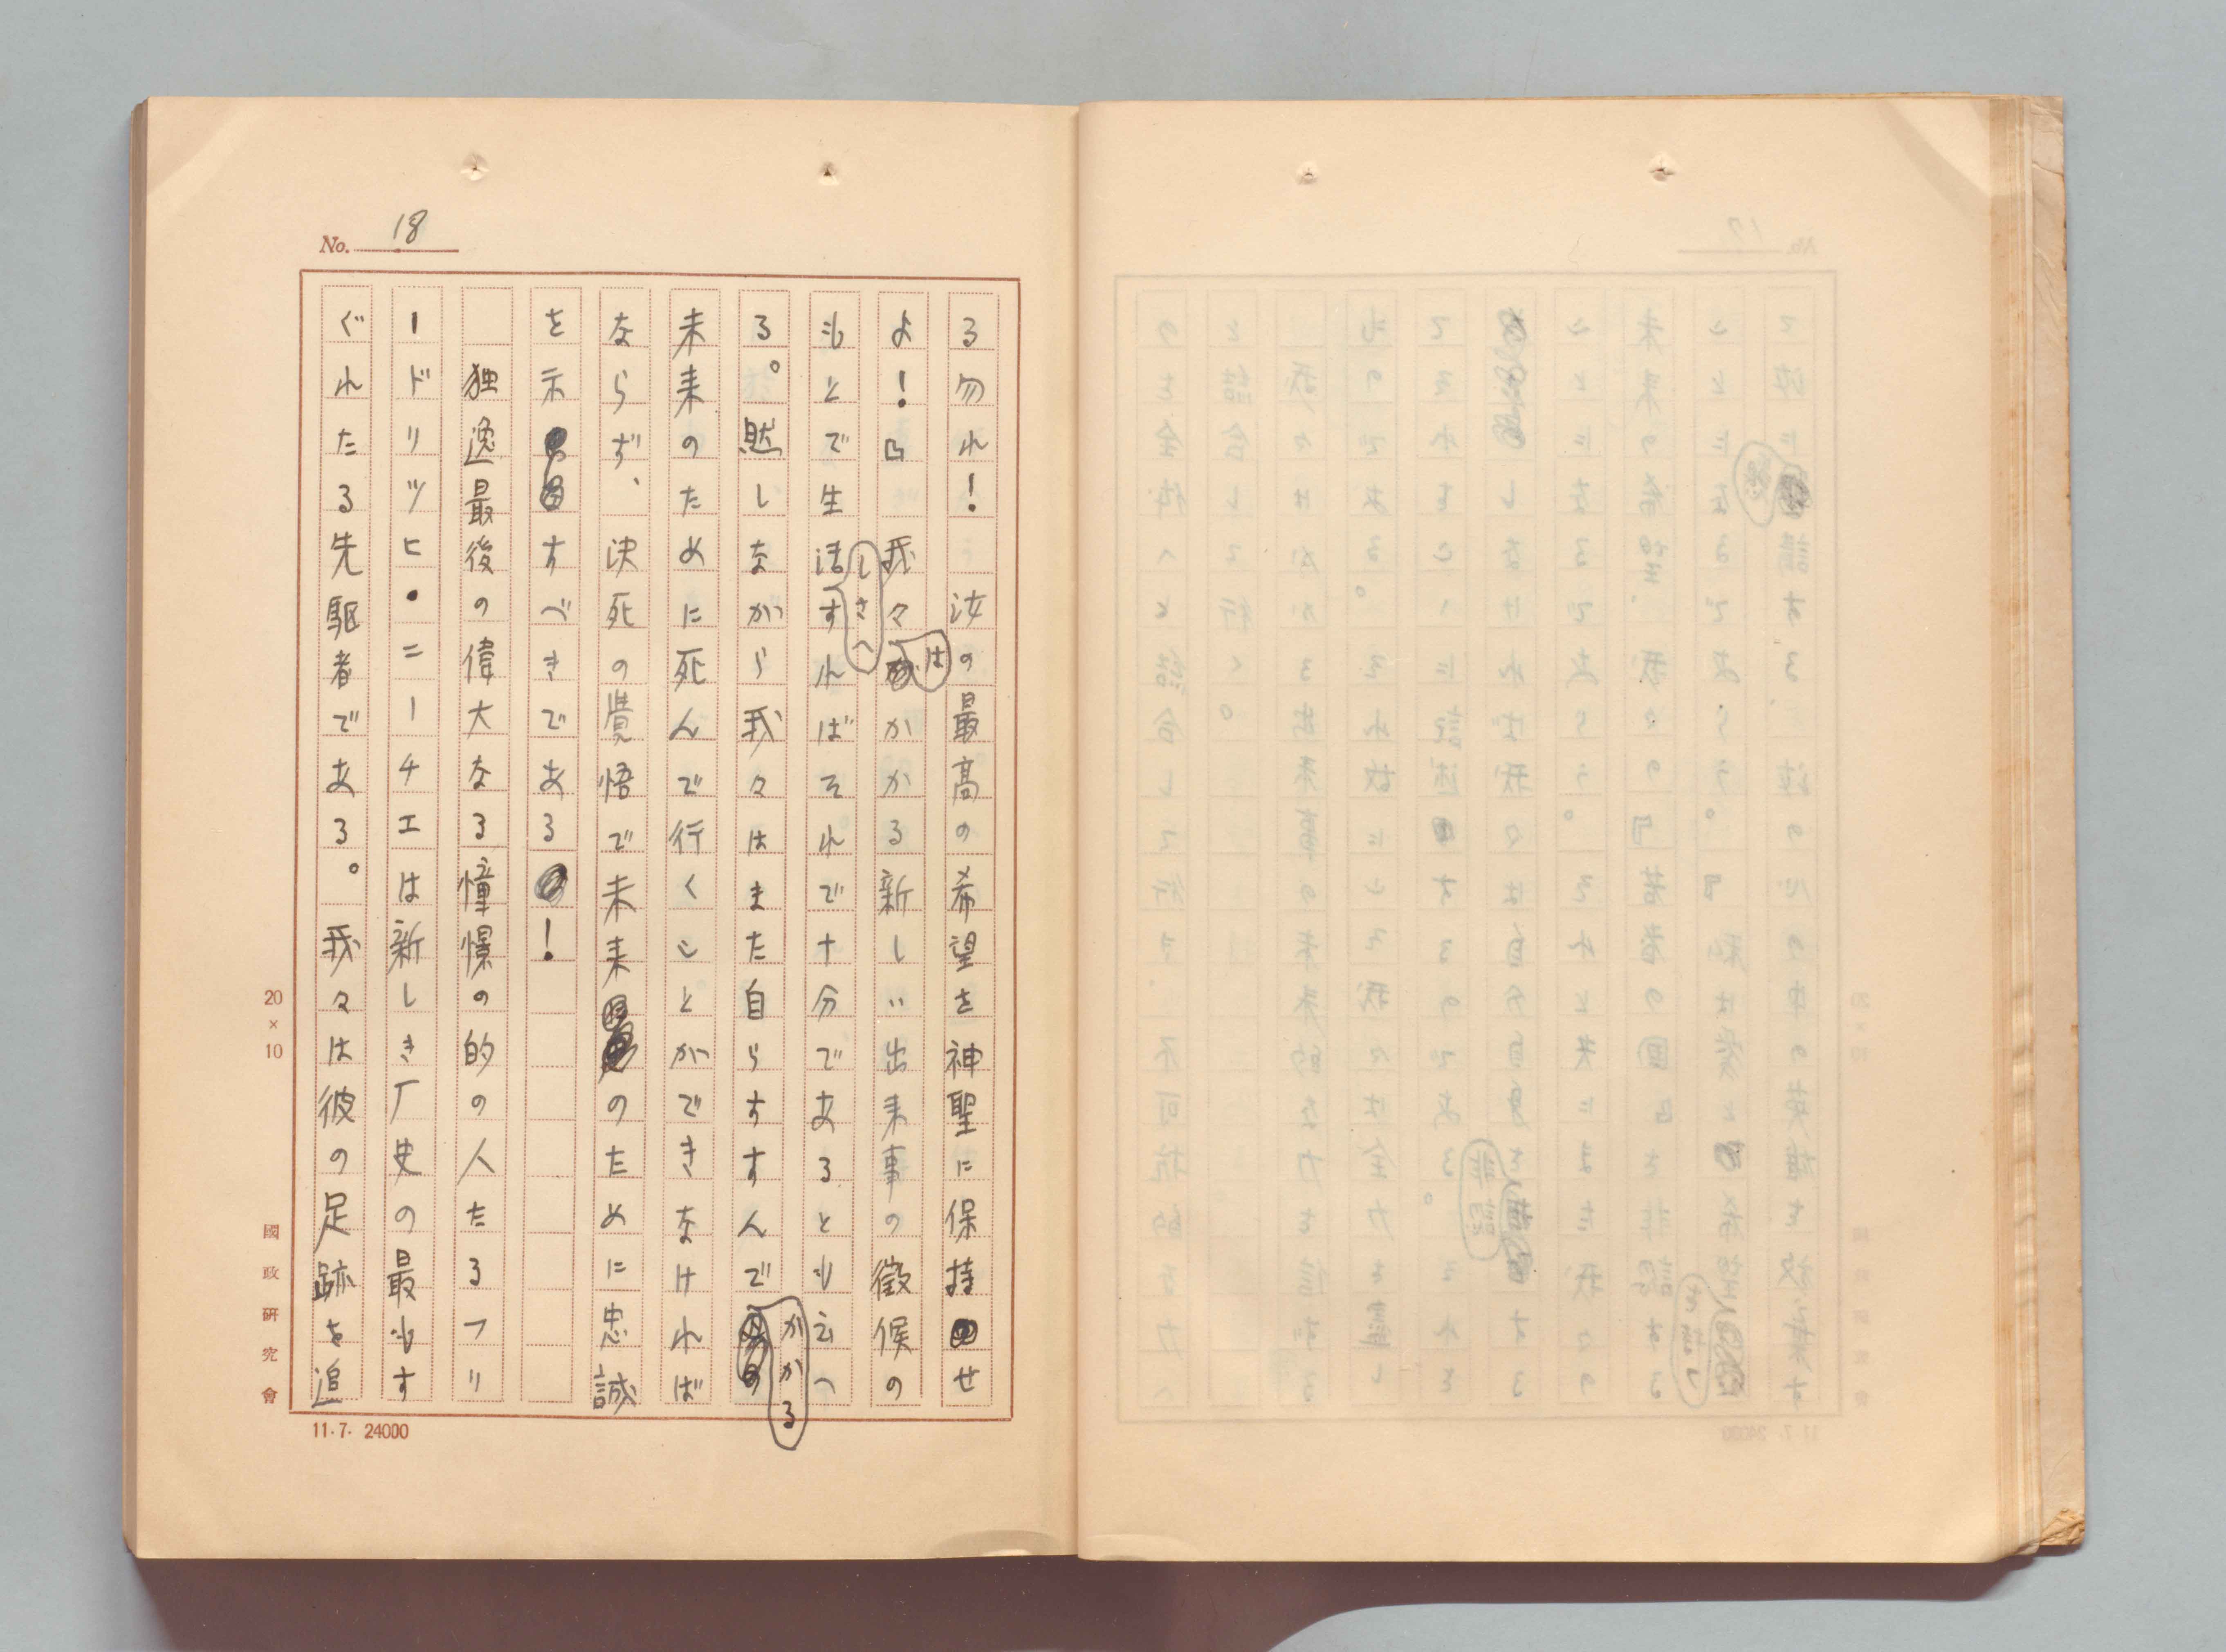 No. 18
る勿れ！　汝の最高の希望を神聖に保持せ
よ！』　我々はかかる新しい出来事の徴候の
もとで生活しさへすればそれで十分であるとも云へ
る。然しながら我々はまた自らすすんでかかる
未来のために死んで行くことができなければ
ならず、　決死の覚悟で未来のために忠誠
を示すべきである！
独逸最後の偉大なる憧憬の的の人たるフリ
ードリツヒ・ニーチエは新しき厂史の最もす
ぐれたる先駆者である。　我々は彼の足跡を追
20×10
國政研究會
11.7. 24000